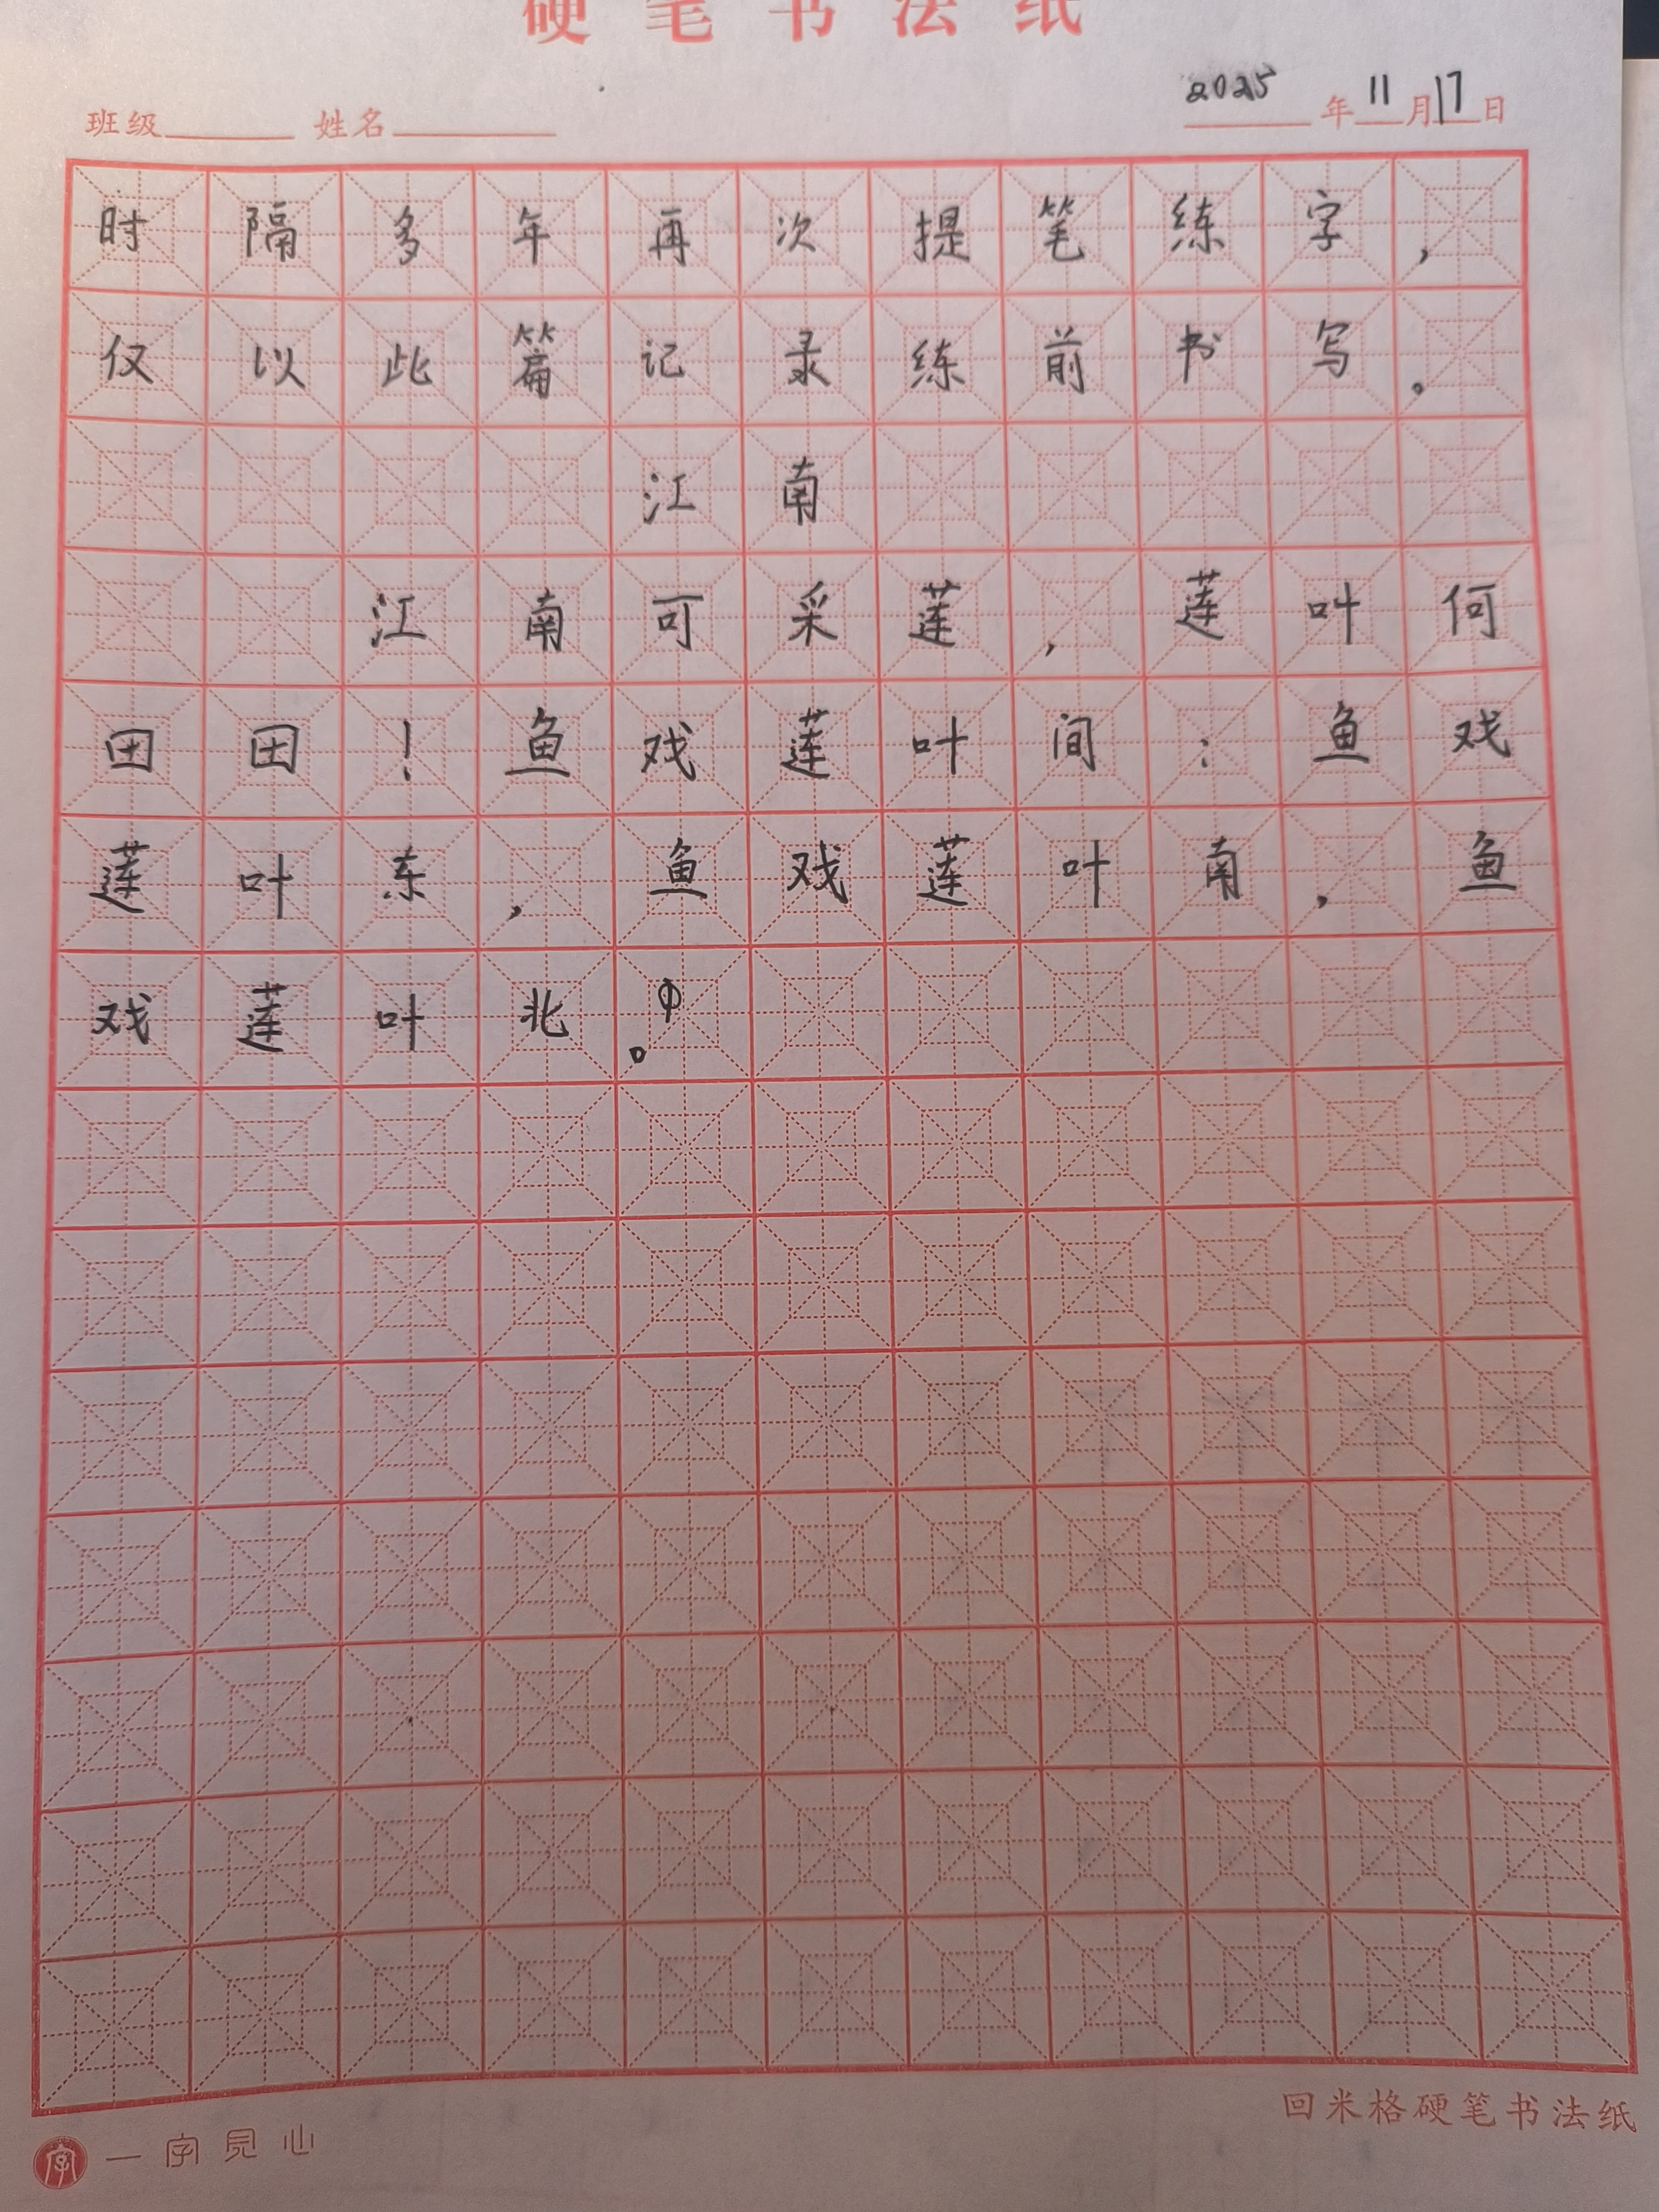 硬笔书法纸
班级 姓名 2025年11月17日
时隔多年再次提笔练字，
仅以此篇记录练前书写。
江南
江南可采莲，莲叶何
田田！鱼戏莲叶间：鱼戏
莲叶东，鱼戏莲叶南，鱼
戏莲叶北。
回米格硬笔书法纸
字 一字见心